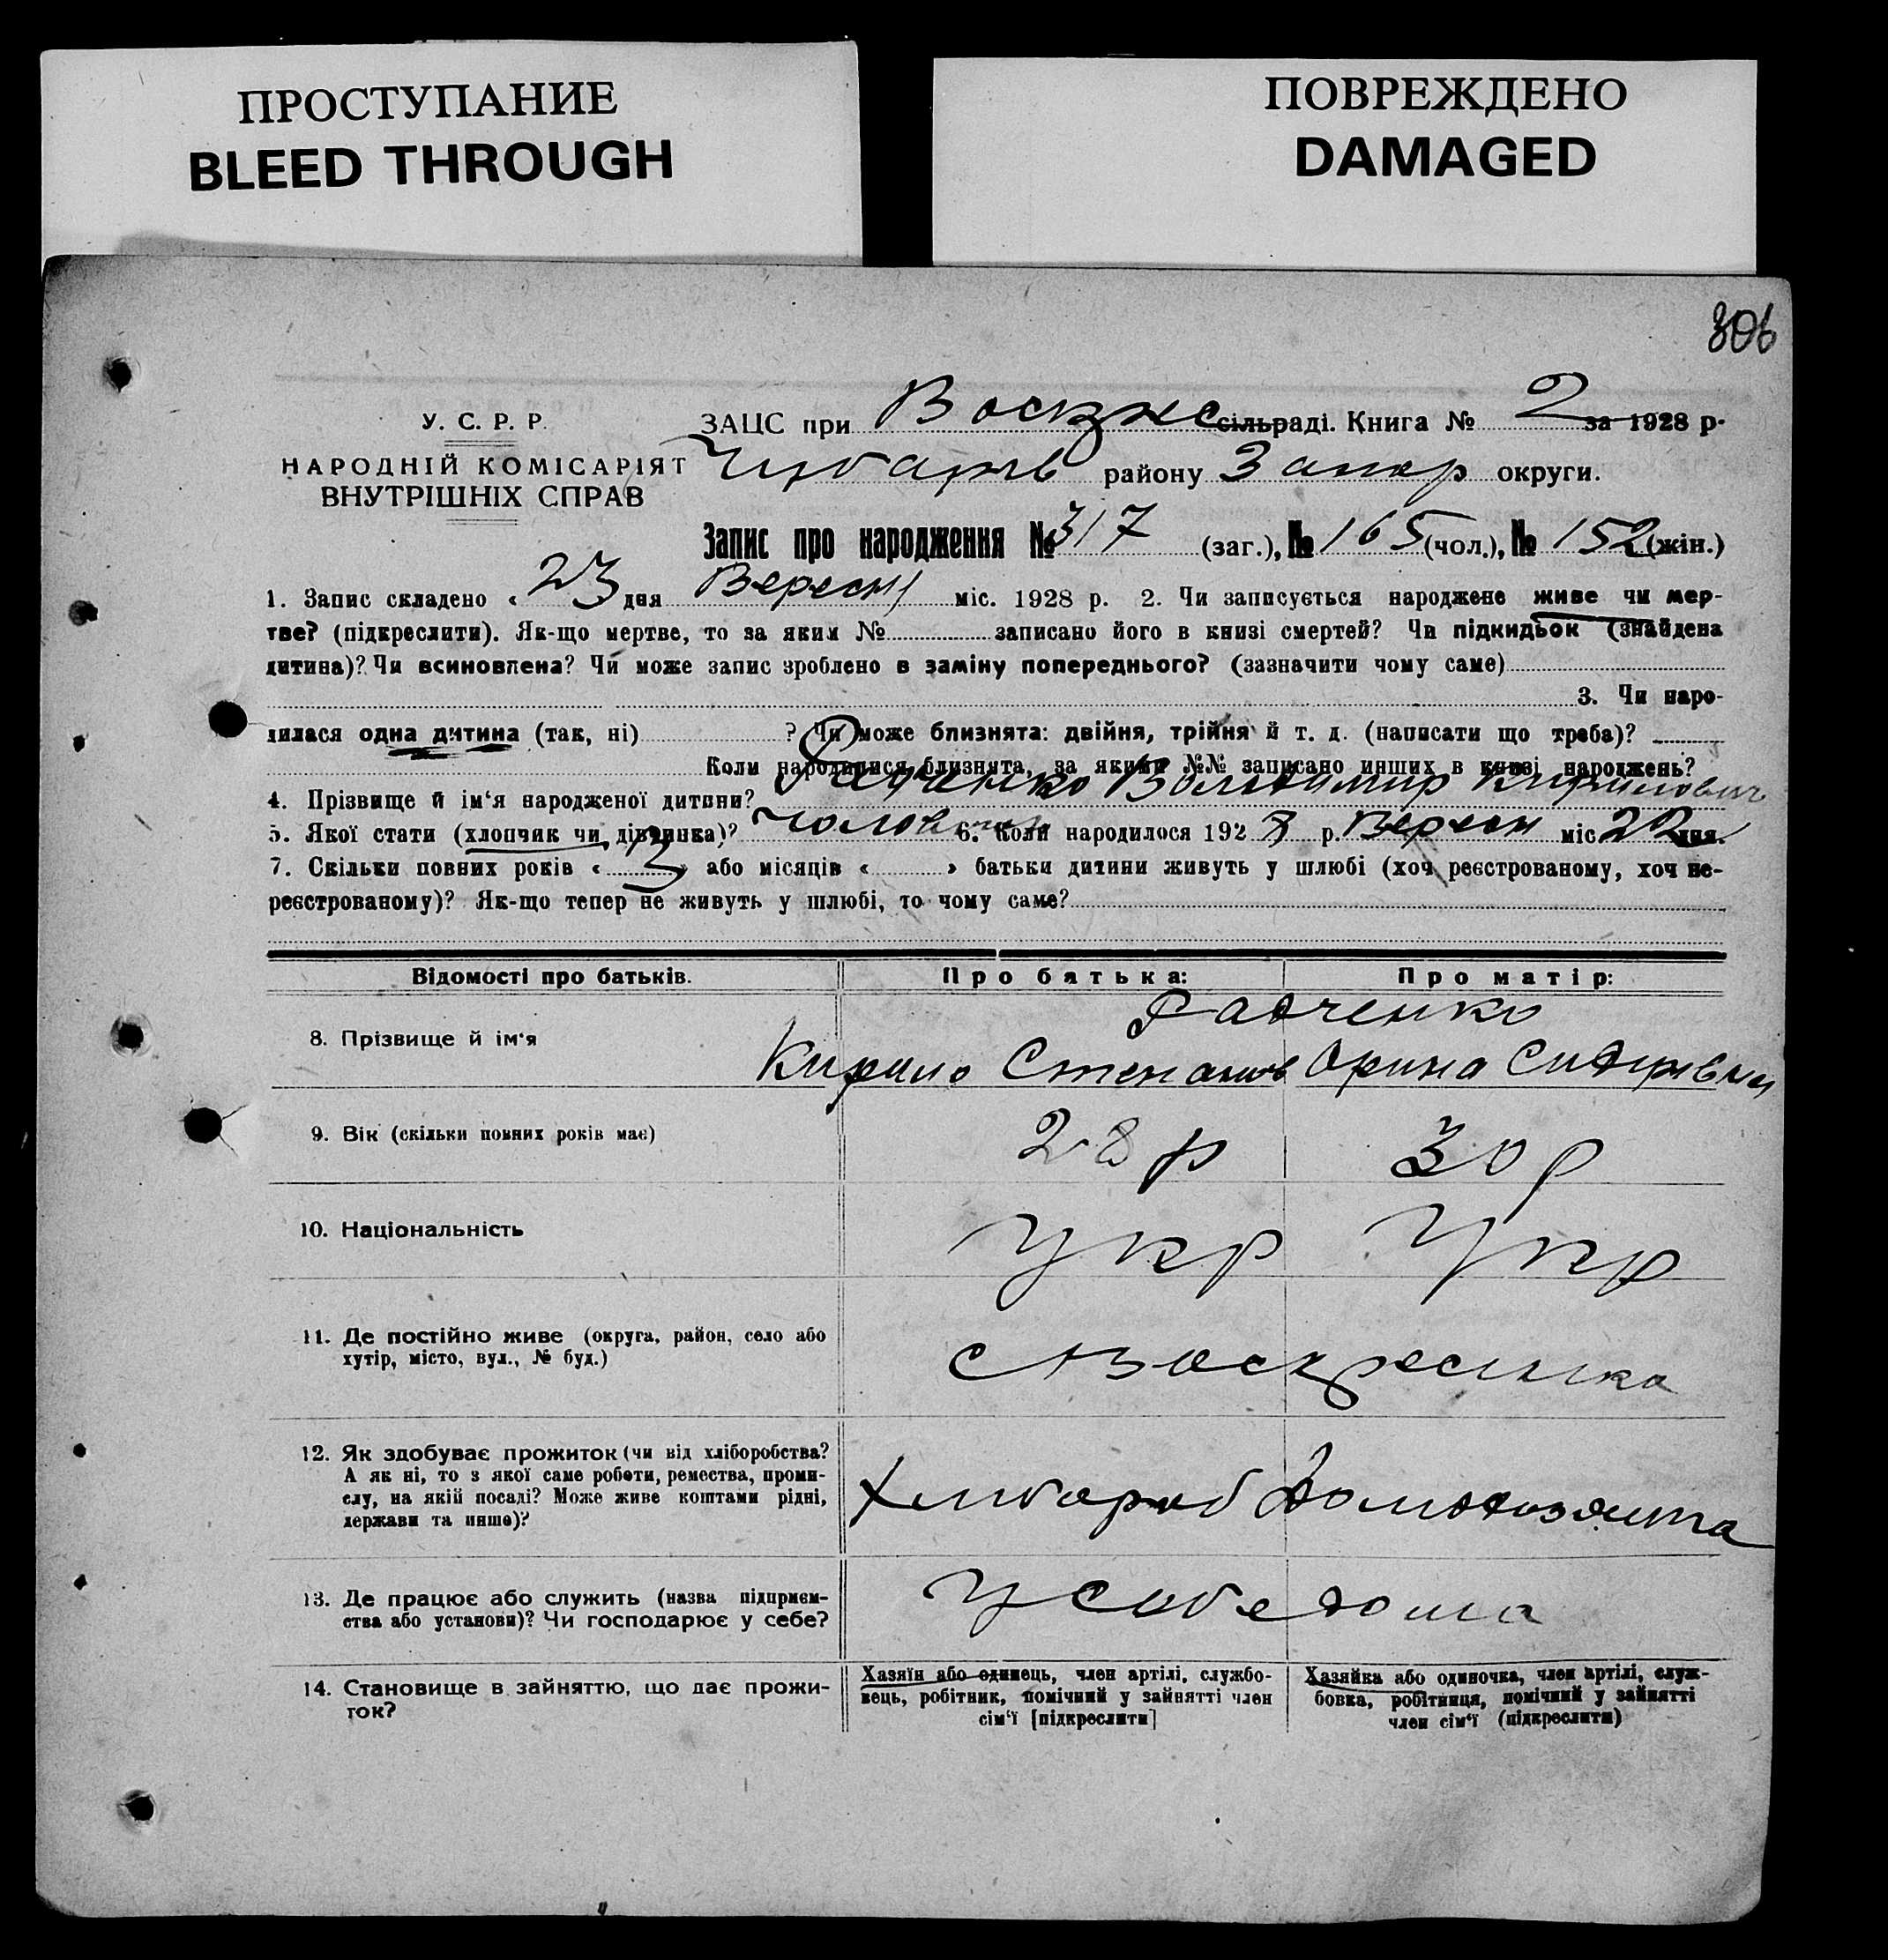 ПРОСТУПАНИЕ
BLEED THROUGH
ПОВРЕЖДЕНО
DAMAGED
306
У. С. Р. Р.
НАРОДНІЙ КОМІСАРІЯТ
ВНУТРІШНІХ СПРАВ
ЗАЦС при сільраді. Книга № 2 за 1928 р.
району Запор округи.
Запис про народження № 317 (заг.), № 165 (чол.), № 152 (жін.)
1. Запис складено « 23 дня Вересн міс. 1928 р. 2. Чи записується народжене живе чи мер-
тве? (підкреслити). Як-що мертве, то за яким № записано його в книзі смертей? Чи підкидьок (знайдена
дитина)? Чи всиновлена? Чи може запис зроблено в заміну попереднього? (зазначити чому саме)
3. Чи наро-
дилася одна дитина (так, ні) ? Чи може близнята: двійня, трійня й т. д. (написати що треба)?
Коли народилися близнята, за якими №№ записано инших в книзі народжень?
4. Прізвище й ім'я народженої дитини? Радченко Володимир Кирилович
5. Якої стати (хлопчик чи дівчинка)? 6. Коли народилося 1928 р. Вересн міс 22 дня.
7. Скільки повних років « 3 » або місяців « » батьки дитини живуть у шлюбі (хоч реєстрованому, хоч не-
реєстрованому)? Як-що тепер не живуть у шлюбі, то чому саме?
Відомості про батьків.
Про батька:
Про матір:
8. Прізвище й ім'я
Радченко
Кирило Степанов Орина Сидорівна
9. Вік (скільки повних років має)
28 р
30 р
10. Національність
Укр
Укр
11. Де постійно живе (округа, район, село або
хутір, місто, вул., № буд.)
с Воскресенка
12. Як здобуває прожиток (чи від хліборобства?
А як ні, то з якої саме роботи, ремества, проми-
слу, на якій посаді? Може живе коштами рідні,
держави та инше)?
Хлібороб Домохозяйка
13. Де працює або служить (назва підприєм-
ства або установи)? Чи господарює у себе?
У себе дома
14. Становище в зайняттю, що дає прожи-
ток?
Хазяїн або одинець, член артілі, службо-
вець, робітник, помічний у зайнятті член
сім'ї [підкреслити]
Хазяйка або одиночка, член артілі, служ-
бовка, робітниця, помічний у зайнятті
член сім'ї (підкреслити)